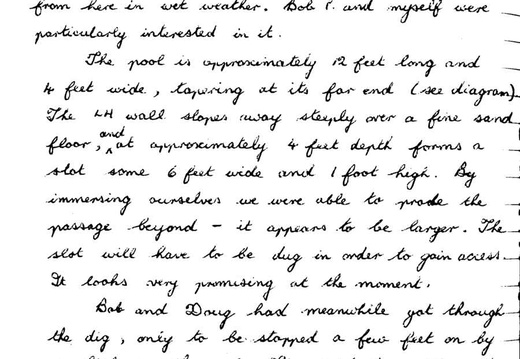 from here in wet weather. Bob P. and myself were
particularly interested in it.
The pool is approximately 12 feet long and
4 feet wide, tapering at its far end (see diagram)
The LH wall slopes away steeply over a fine sand
floor, and at approximately 4 feet depth forms a
slot some 6 feet wide and 1 foot high. By
immersing ourselves we were able to probe the
passage beyond - it appears to be larger. The
slot will have to be dug in order to gain access.
It looks very promising at the moment.
Bob and Doug had meanwhile got through
the dig, only to be stopped a few feet on by